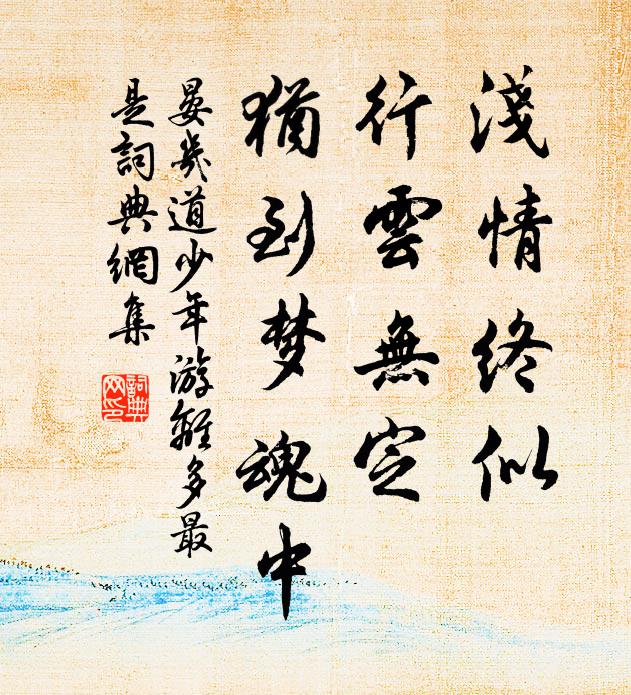 淺情終似
行雲無定
猶到梦魂中
晏幾道少年游離多最
是詞典網集
詞典
网印